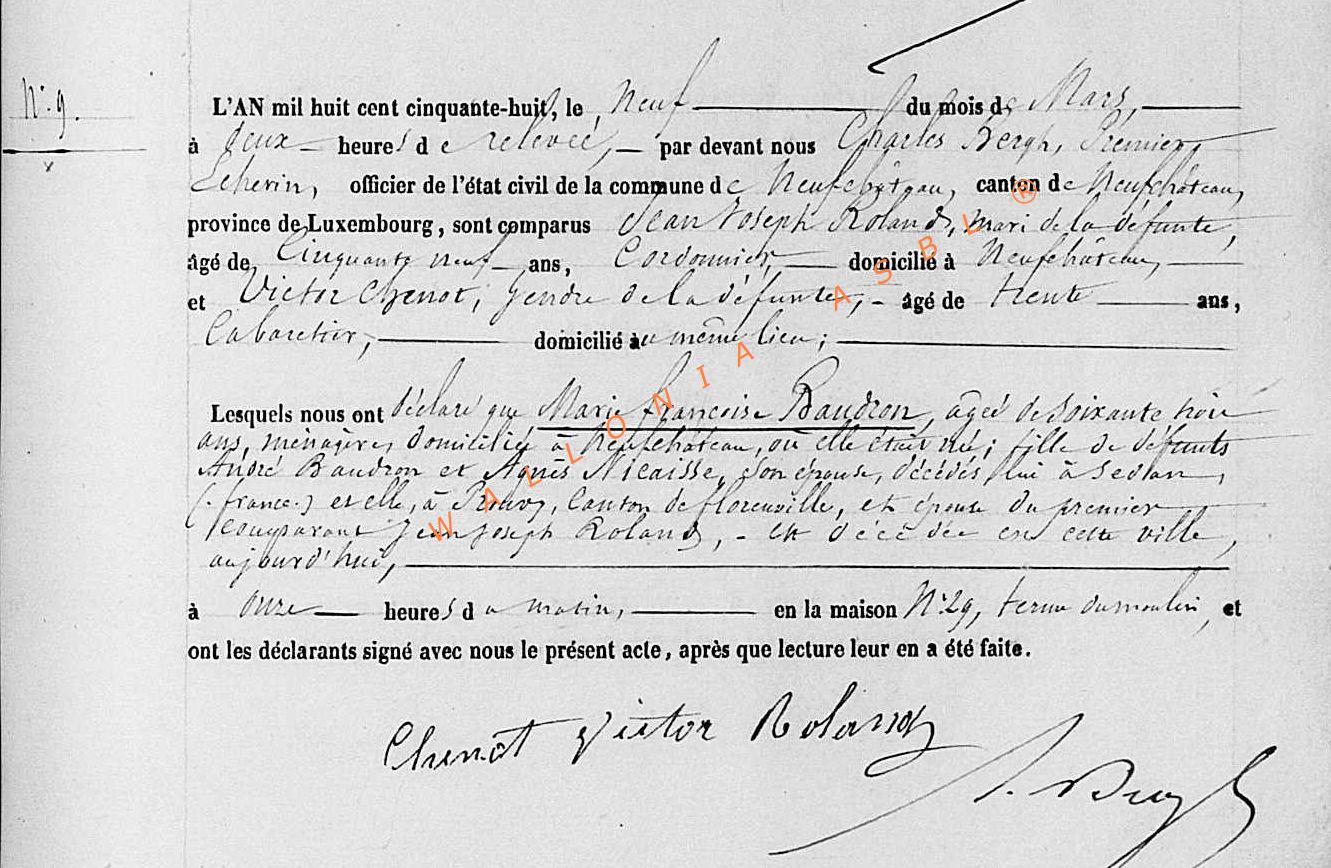 N° 9.
L'AN mil huit cent cinquante-huit, le neuf du mois de Mars,
à deux heures de relevée, par devant nous Charles Bergh, Premier
Echevin, officier de l'état civil de la commune de Neufchâteau, canton de Neufchâteau,
province de Luxembourg, sont comparus Jean Joseph Roland, mari de la défunte,
âgé de Cinquante neuf ans, Cordonnier, domicilié à Neufchâteau,
et Victor Chenot, gendre de la défunte, - âgé de trente ans,
Cabaretier, domicilié au même lieu ;
Lesquels nous ont déclaré que Marie françoise Baudron, âgée de soixante
ans, ménagère, domiciliée à Neufchâteau, où elle était née ; fille de défunts
André Baudron et Agnès Nicaisse, son épouse, décédés, lui à Sedan,
(france.) et elle, à Prouvy, Canton de florenville, et épouse du premier
Comparant Jean Joseph Roland, - est décédée en cette ville,
aujourd'hui,
à onze heures du matin, en la maison N° 29, terme du moulin, et
ont les déclarants signé avec nous le présent acte, après que lecture leur en a été faite.
Chenot Victor Roland
WALLONIA ASBL ®